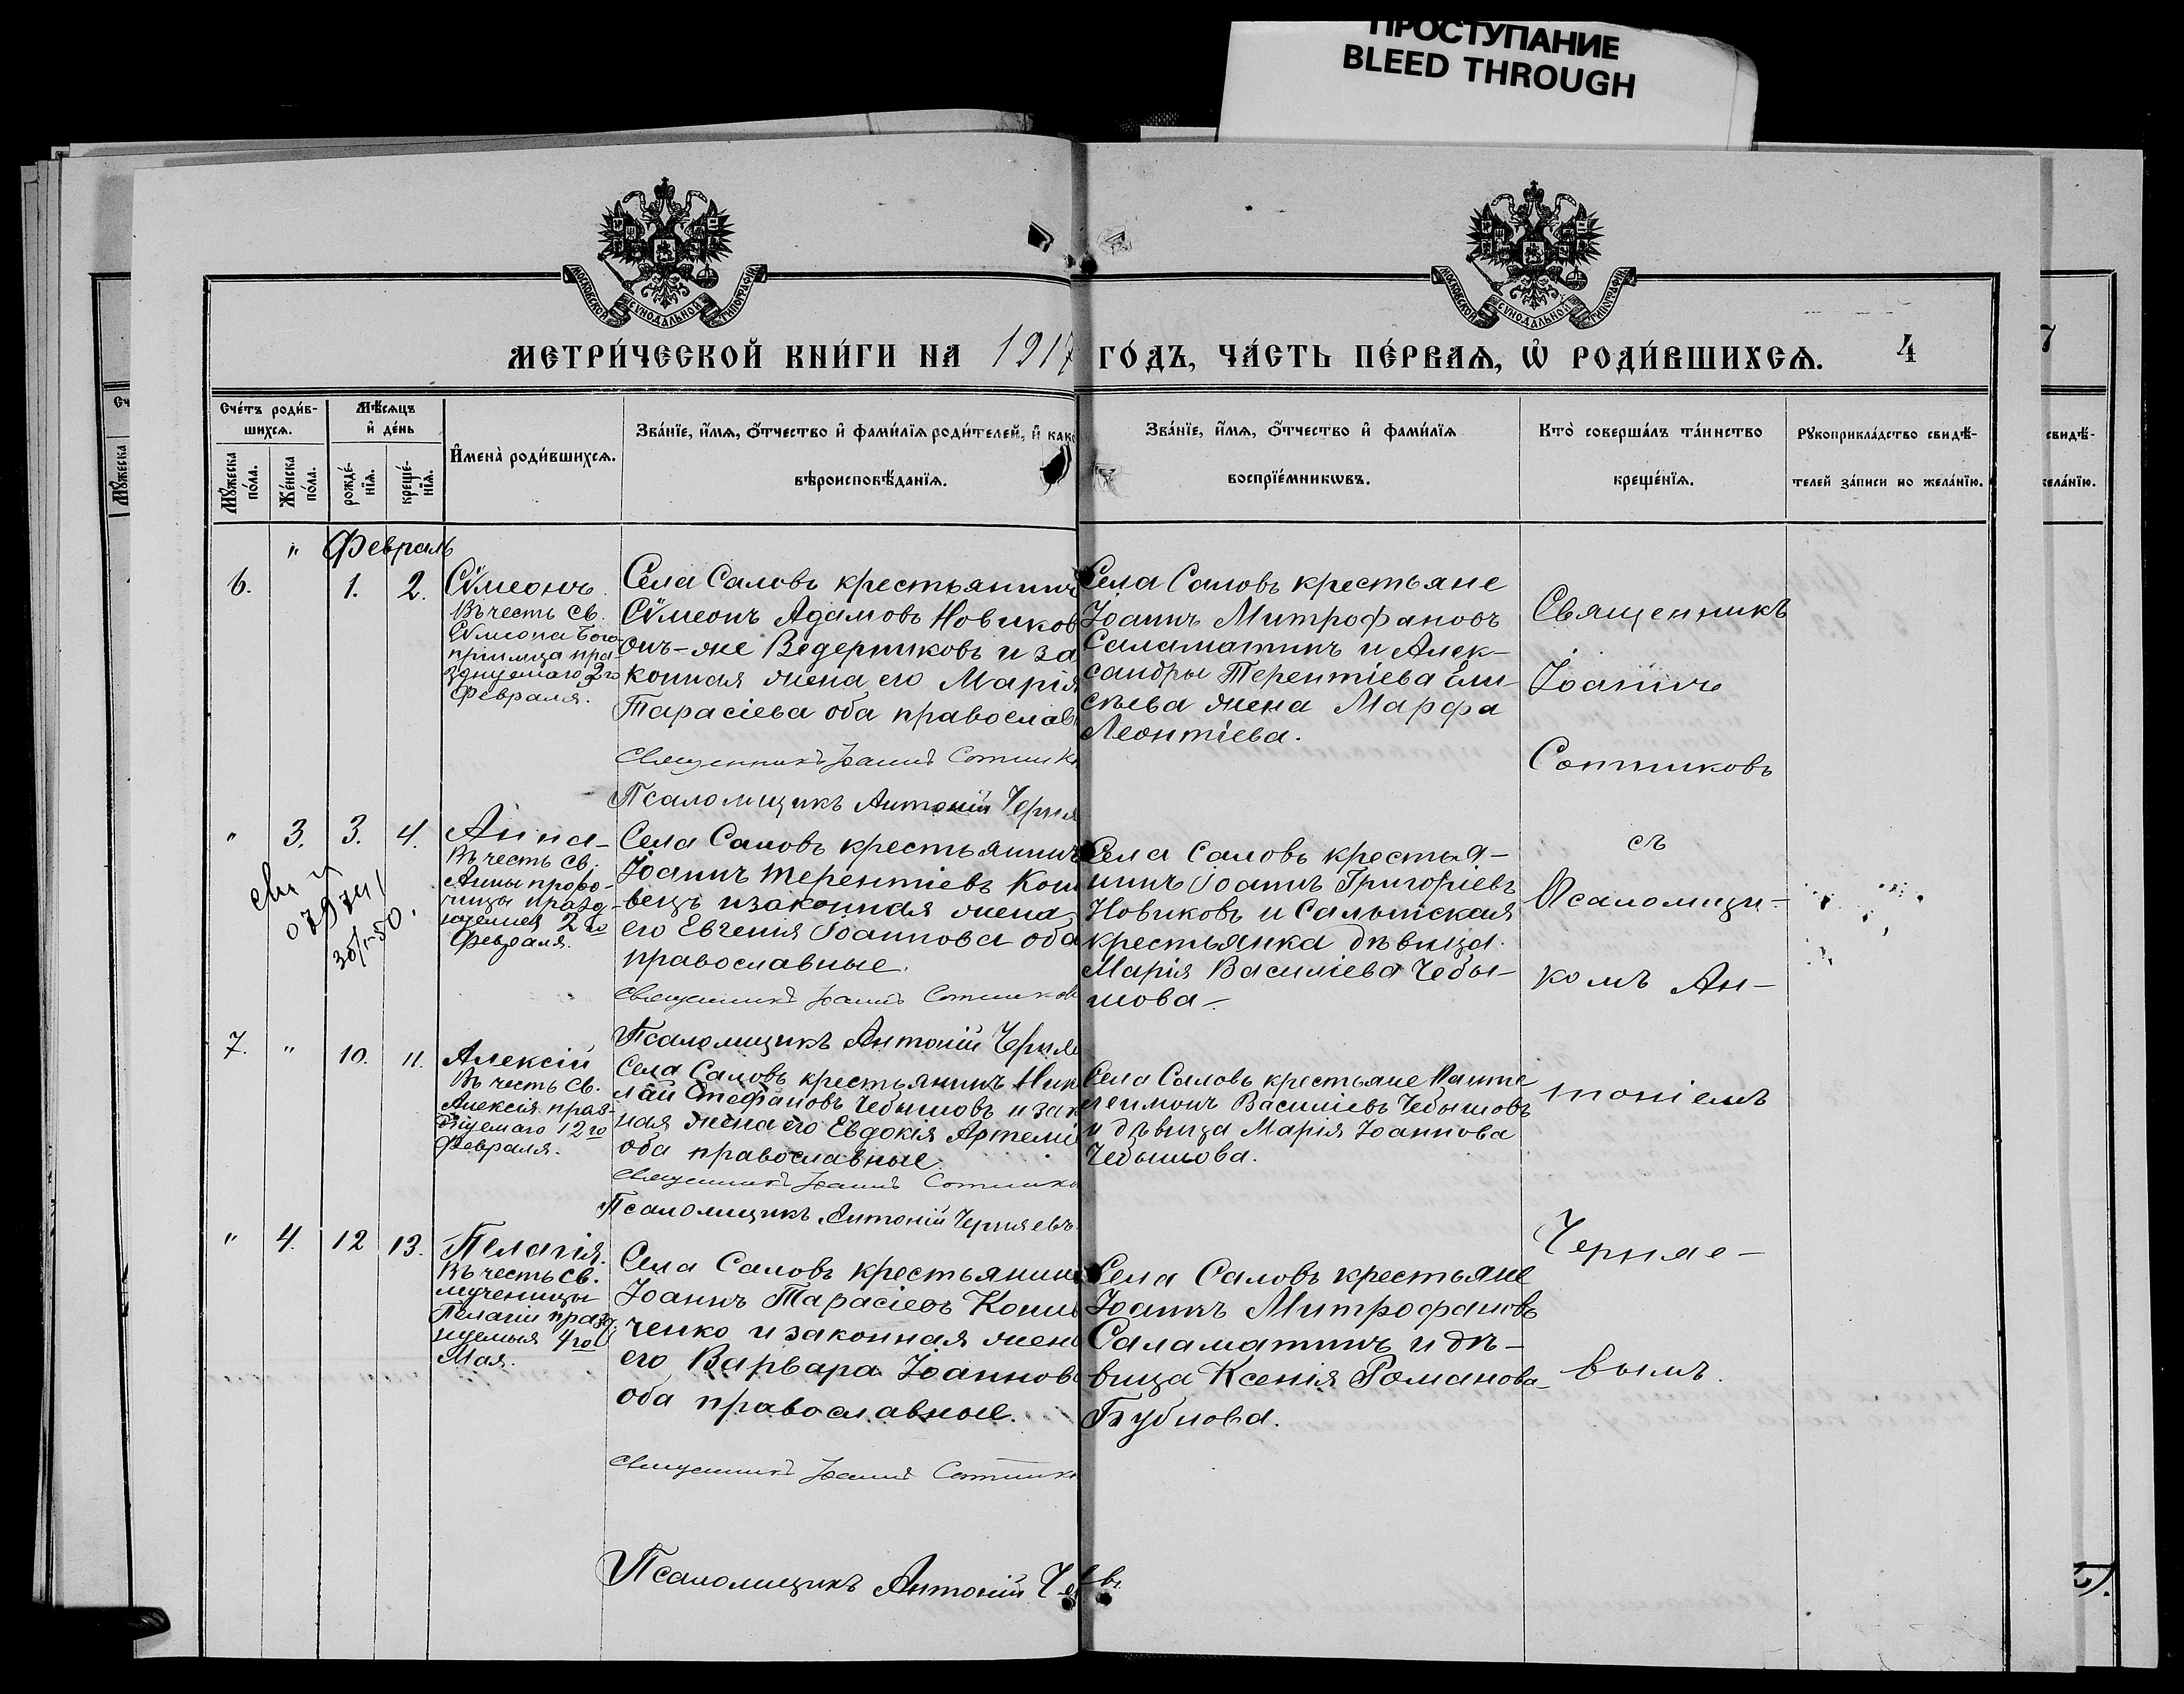 ПРОСТУПАНИЕ
BLEED THROUGH
МОСКОВСКОЙ СѴНОДАЛЬНОЙ ТИПОГРАФІИ
МОСКОВСКОЙ СѴНОДАЛЬНОЙ ТИПОГРАФІИ
МЕТРИ́ЧЕСКОЙ КНИ́ГИ НА 1917 ГО́ДЪ, ЧА́СТЬ ПЕ́РВАѦ, Ѡ҆ РОДИ́ВШИХСѦ. 4
7
Сче́тъ роди́в-
шихсѧ.
Мꙋ́жеска
по́ла.
Же́нска
по́ла.
Мѣ́сѧцъ
и҆ де́нь
рожде́-
нїѧ.
креще́-
нїѧ.
И҆мена̀ роди́вшихсѧ.
Зва́нїе, и҆́мѧ, ѻ҆́тчество и҆ фами́лїѧ роди́телей, и҆ как
вѣроисповѣ́данїѧ.
Зва́нїе, и҆́мѧ, ѻ҆́тчество и҆ фами́лїѧ
воспрїе́мникѡвъ.
Кто̀ соверша́лъ та́инство
креще́нїѧ.
Рꙋкоприкла́дство свидѣ́-
телей за́писи по жела́нїю.
свидѣ́-
жела́нїю.
" Февраль
6. 1. 2.
Сѵмеонъ.
Въ честь св.
Сѵмеона Бого-
пріимца пра-
зднуемаго 3го
Февраля.
Села Саловъ крестьянинъ
Сѵмеонъ Адамовъ Новиков
онъ-же Ведерниковъ и за
конная жена его Марія
Тарасіева оба православ
Священникъ Іоаннъ Сотник
Псаломщикъ Антоній Черня
Села Саловъ крестьяне
Іоаннъ Митрофановъ
Саламатинъ и Алек-
сандры Терентіева Ели-
сѣева жена Марфа
Леонтіева.
Священникъ
Іоаннъ
Сотниковъ
съ
Псаломщи-
комъ Ан-
тоніемъ
Черняе-
вымъ.
" 3. 3. 4.
07974
Анна-
Въ честь св.
Анны проро-
чицы празд-
нуемыя 2го
Февраля.
Села Саловъ крестьянинъ
Іоаннъ Терентіевъ Кош
вецъ и законная жена
его Евгенія Іоаннова оба
православные.
Священникъ Іоаннъ Сотников
Псаломщикъ Антоній Черняе
Села Саловъ крестья-
нинъ Іоаннъ Григоріевъ
Новиковъ и Салынская
крестьянка дѣвица
Марія Василіева Чебы-
шова-
7. " 10. 11.
Алексій
Въ честь св.
Алексія праз-
днуемаго 12го
Февраля.
Села Саловъ крестьянинъ Ник
лай Стефановъ Чебышовъ и зак
ная жена его Евдокія Артемі
оба православные.
Священникъ Іоаннъ Сотнико
Псаломщикъ Антоній Черняевъ
Села Саловъ крестьяне Панте
леимонъ Василіевъ Чебышовъ
и дѣвица Марія Іоаннова
Чебышова.
" 4. 12 13.
Пелагія.
Въ честь св.
мученицы
Пелагіи празд
нуемыя 4го
Мая.
Села Саловъ крестьянин
Іоаннъ Тарасіевъ Кош
ченко и законная жена
его Варвара Іоаннов
оба православные.
Священникъ Іоаннъ Сотник
Псаломщикъ Антоній Че
Села Саловъ крестьяне
Іоаннъ Митрофановъ
Саламатинъ и дѣ-
вица Ксенія Романова-
Бубнова.